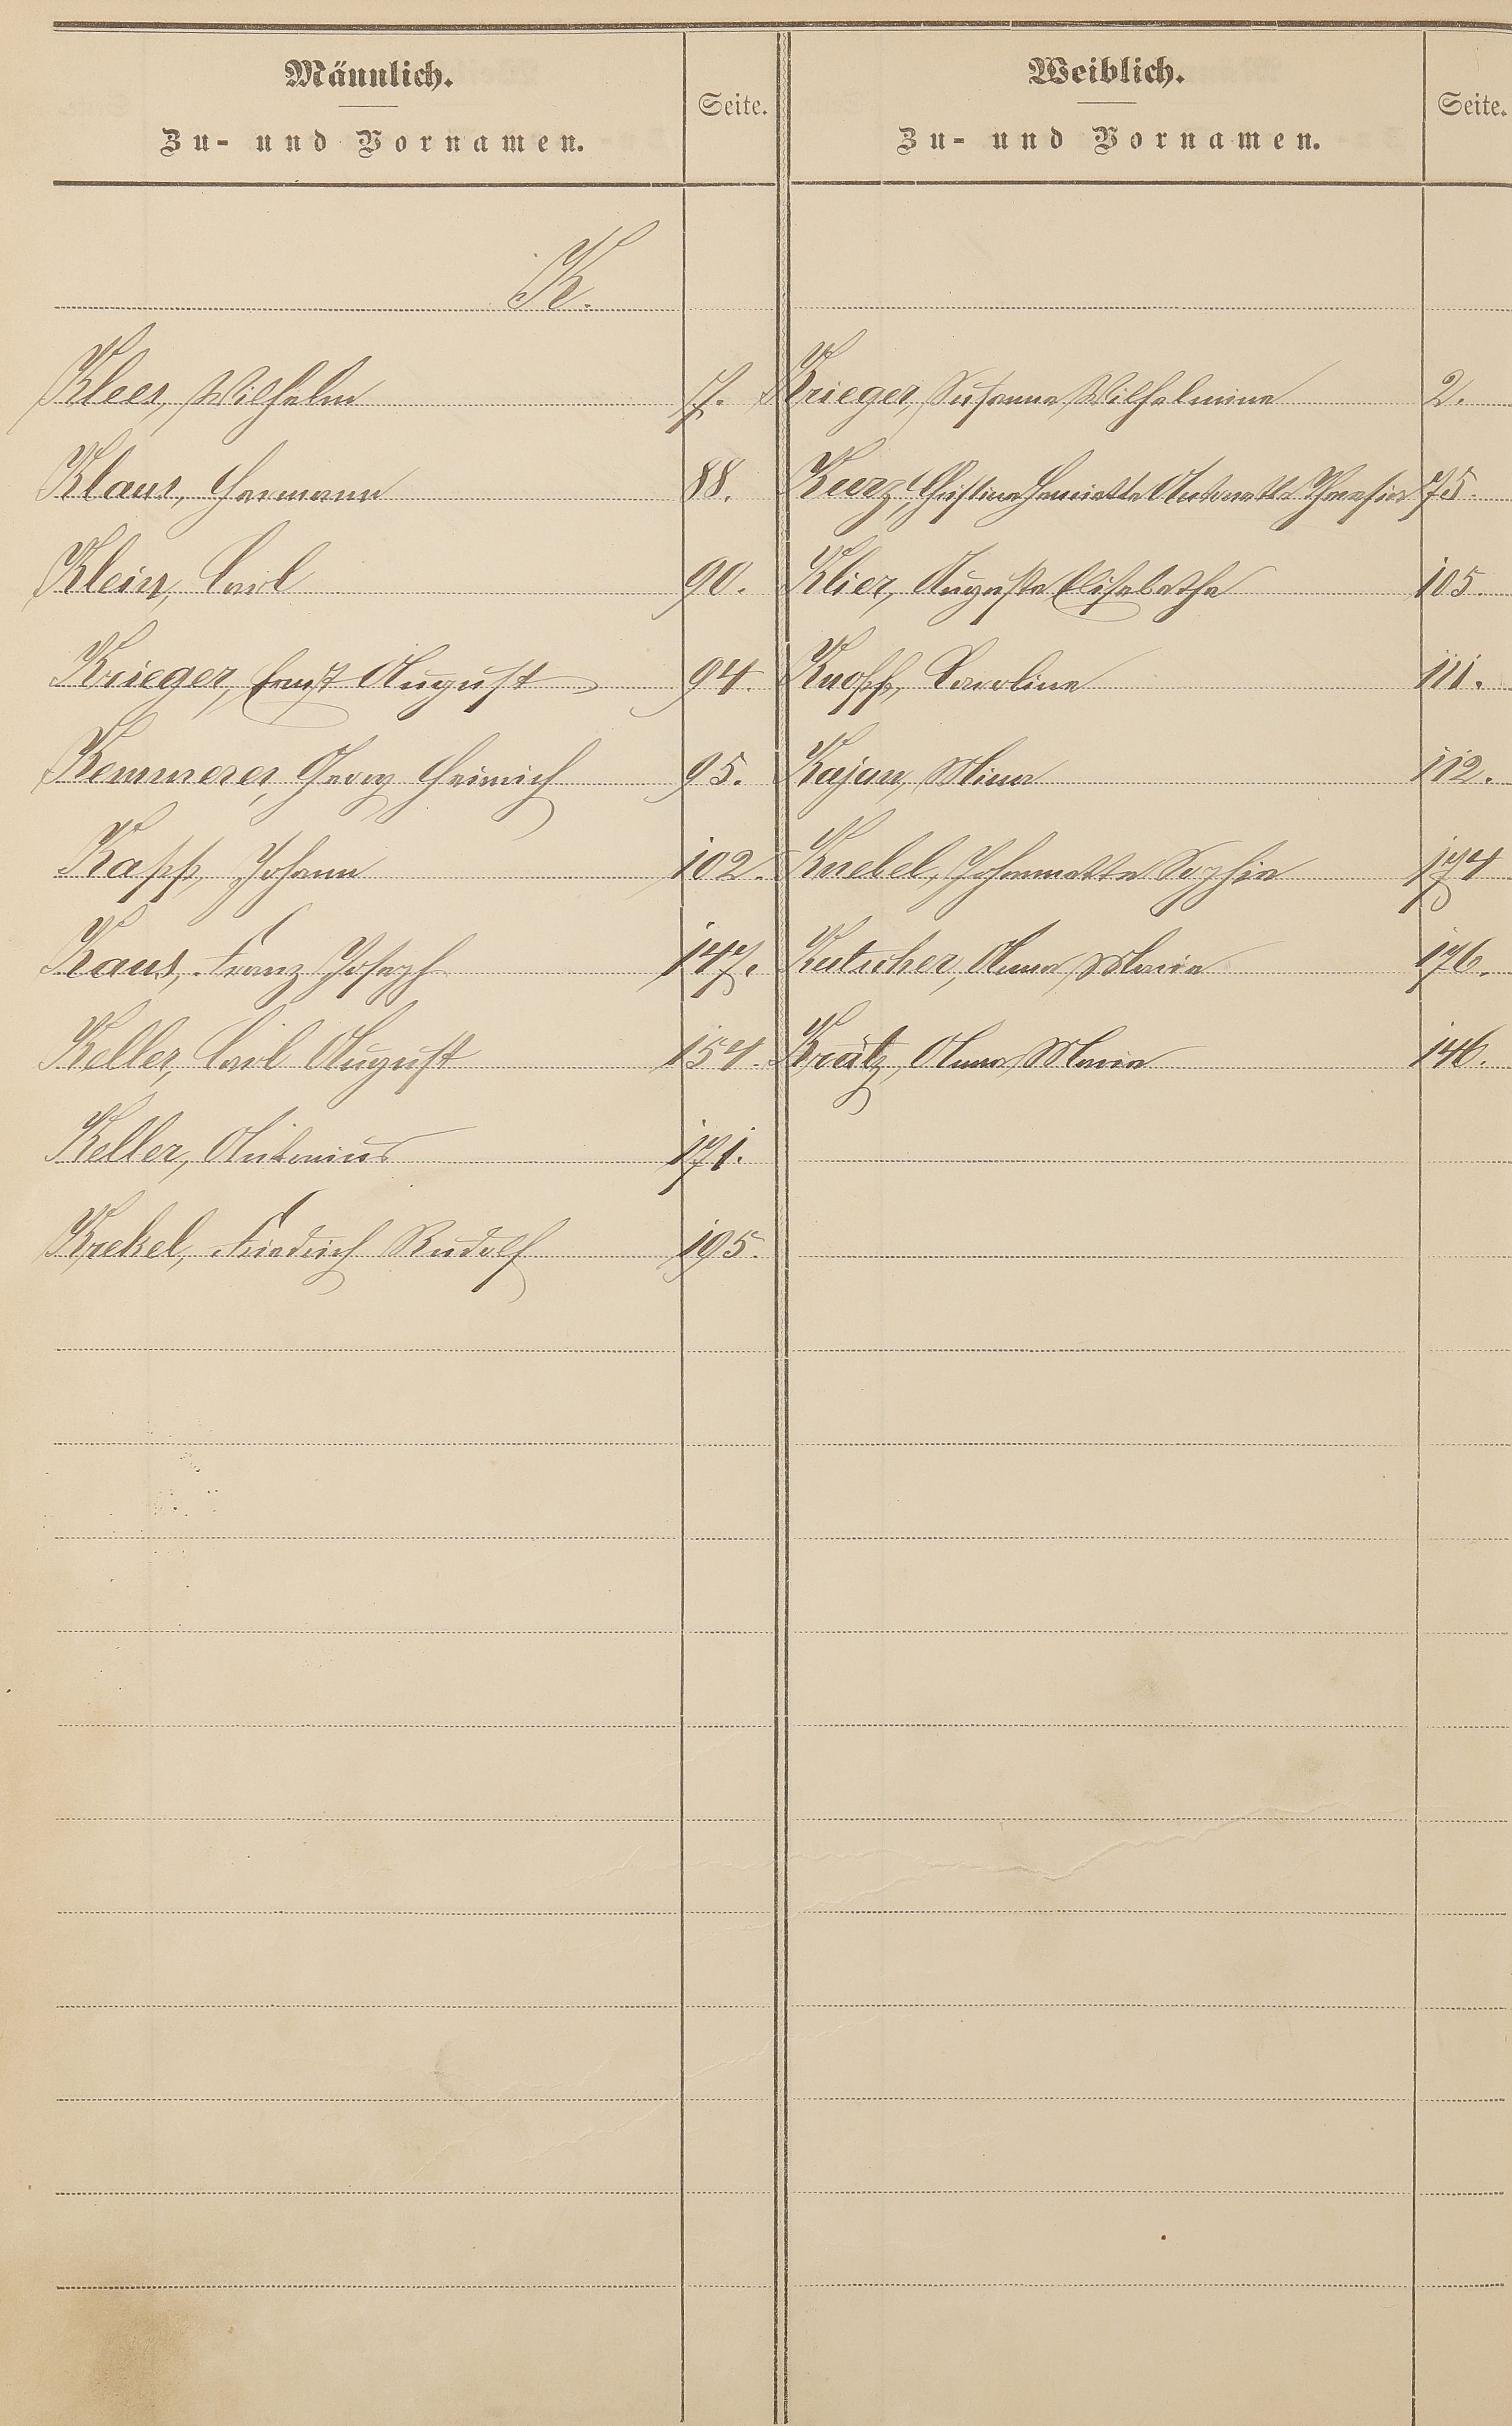 Männlich.
Zu- und Vornamen.
Seite.
Weiblich.
Zu- und Vornamen.
Seite.
K.
Klees, Wilhelm 17. Krieger, Susanna Wilhelmina 2.
Klaus, Hermann 88. Kurz, Christina Henriette Antonette Theresia 75.
Klein, Carl 90. Klier, Auguste Elisabetha 105.
Krieger, Ernst August 94. Knopp, Caroline 111.
Kemmerer, Georg Heinrich 95. Kajan, Mina 112.
Kapp, Johann 102. Knebel, Johannette Sophia 174
Kaus, Franz Joseph 147. Kutscher, Anna Maria 176.
Keller, Carl August 154. Krätz, Anna Maria 146.
Keller, Antonius 171.
Krekel, Friedrich Rudolf 195.